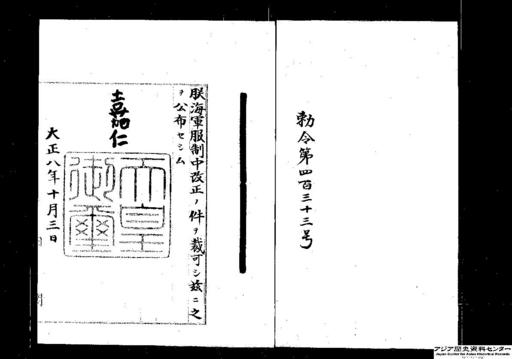 勅令第四百三十三号
朕海軍服制中改正ノ件ヲ裁可シ茲ニ之
ヲ公布セシム
嘉仁
天皇御璽
大正八年十月三日
アジア歴史資料センター
Japan Center for Asian Historical Records